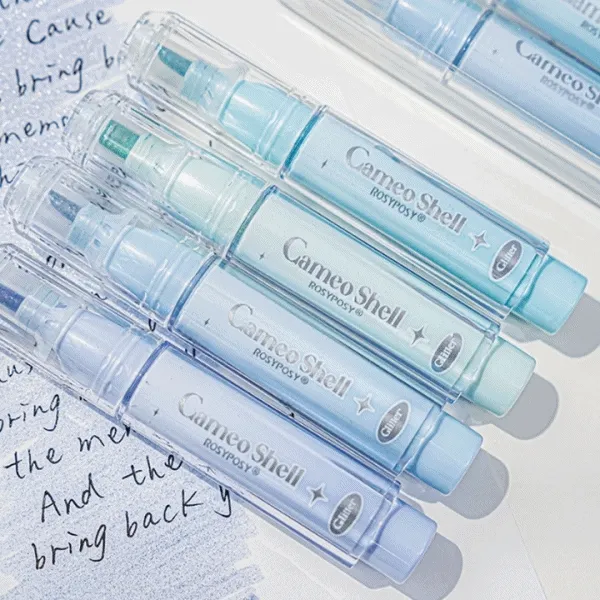 Cause
bring b
mem
Cameo Shell
ROSYPOSY®
Cameo Shell
ROSYPOSY®
Glitter
Cameo Shell
ROSYPOSY®
Glitter
Cameo Shell
ROSYPOSY®
Glitter
Cameo Shell
ROSYPOSY®
Glitter
bring
the me
And the
bring back y